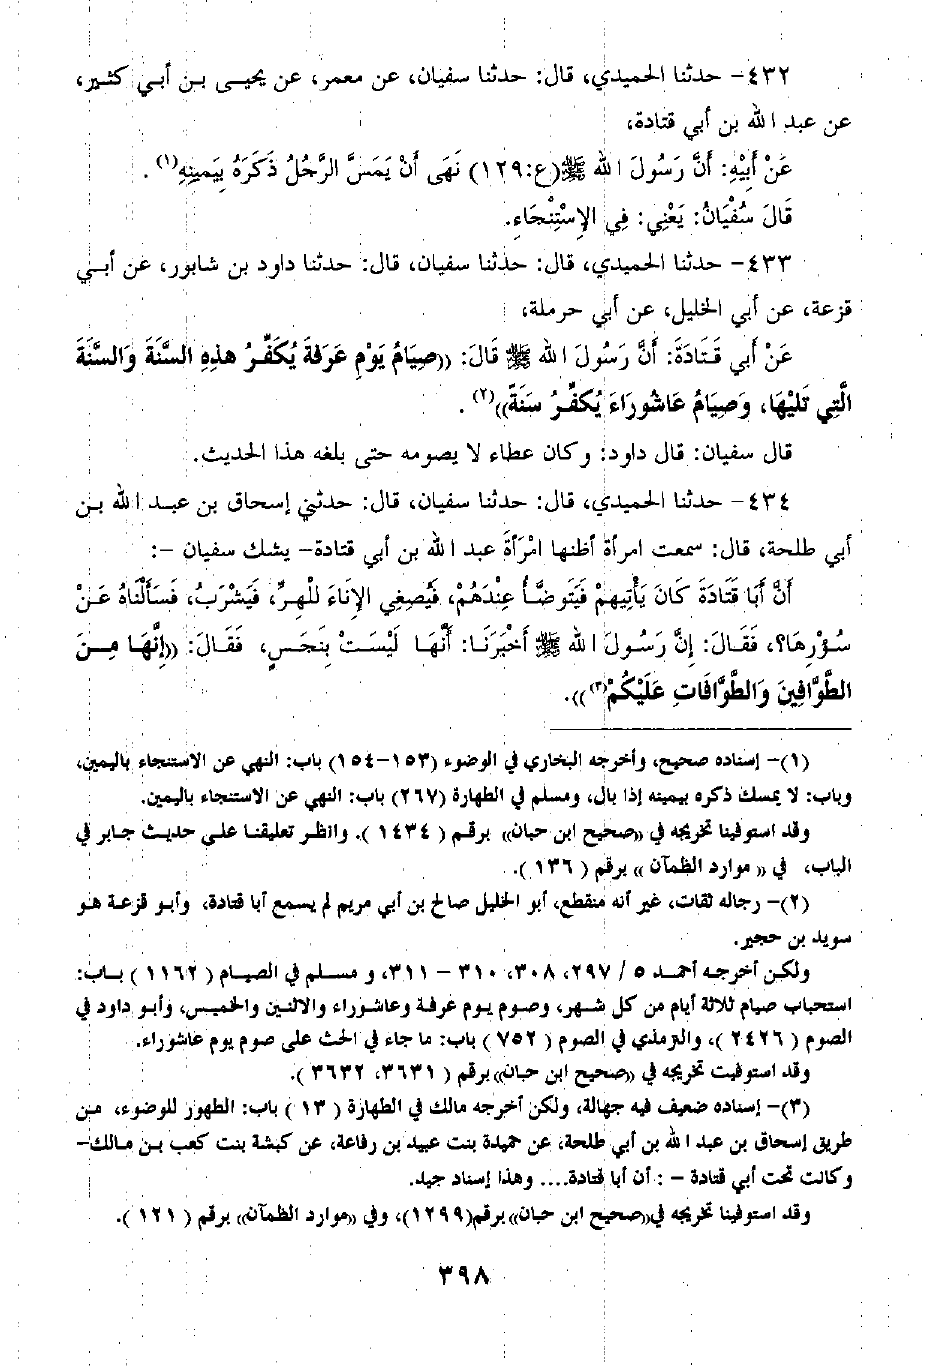 ٤٣٢- حدثنا الحميدي، قال: حدثنا سفيان، عن معمر، عن يحيى بن أبي كثير،
عن عبد الله بن أبي قتادة،
عَنْ أَبِيْهِ: أَنَّ رَسُولَ الله ﷺ(ع:١٢٩) نَهَى أَنْ يَمَسَّ الرَّجُلُ ذَكَرَهُ بِيَمينِهِ(١) .
قَالَ سُفْيَانُ: يَعْنِي: فِي الإِسْتِنْجَاءِ.
٤٣٣- حدثنا الحميدي، قال: حدثنا سفيان، قال: حدثنا داود بن شابور، عن أبي
قزعة، عن أبي الخليل، عن أبي حرملة،
عَنْ أَبي قَتَادَةَ: أَنَّ رَسُولَ الله ﷺ قَالَ: ((صِيَامُ يَوْمِ عَرَفَةَ يُكَفِّرُ هذِهِ السَّنَةَ وَالسَّنَةَ
الَّتِي تَلِيْهَا، وَصِيَامُ عَاشُورَاءَ يُكَفِّرُ سَنَةً))(٢) .
قال سفيان: قال داود: وكان عطاء لا يصومه حتى بلغه هذا الحديث.
٤٣٤- حدثنا الحميدي، قال: حدثنا سفيان، قال: حدثني إسحاق بن عبد الله بن
أبي طلحة، قال: سمعت امرأة أظنها امْرَأَةَ عبد الله بن أبي قتادة- يشك سفيان -:
أَنَّ أَبَا قَتَادَةَ كَانَ يَأْتِيهِمْ فَيَتَوضَّأُ عِنْدَهُمْ، فَيُصغِي الإِنَاءَ لِلْهِرِّ، فَيَشْرَبُ، فَسَأَلْنَاهُ عَنْ
سُؤْرِهَا؟، فَقَالَ: إِنَّ رَسُولَ الله ﷺ أَخْبَرَنَا: أَنَّهَا لَيْسَتْ بِنَجَسٍ، فَقَالَ: ((إِنَّهَا مِنَ
الطَّوَّافِينَ وَالطَّوَّافَاتِ عَلَيْكُمْ(٣))).
(١)- إسناده صحيح، وأخرجه البخاري في الوضوء (١٥٣-١٥٤) باب: النهي عن الاستنجاء باليمين،
وباب: لا يمسك ذكره بيمينه إذا بال، ومسلم في الطهارة (٢٦٧) باب: النهي عن الاستنجاء باليمين.
وقد استوفينا تخريجه في ((صحيح ابن حبان)) برقم ( ١٤٣٤ ). وانظر تعليقنا على حديث جابر في
الباب، في (( موارد الظمآن )) برقم ( ١٣٦ ).
(٢)- رجاله ثقات، غير أنه منقطع، أبو الخليل صالح بن أبي مريم لم يسمع أبا قتادة، وأبو قزعة هو
سويد بن حجير.
ولكن أخرجه أحمد ٥ / ٢٩٧، ٣٠٨، ٣١٠ - ٣١١، و مسلم في الصيام ( ١١٦٢ ) باب:
استحباب صيام ثلاثة أيام من كل شهر، وصوم يوم عرفة وعاشوراء والاثنين والخميس، وأبو داود في
الصوم ( ٢٤٢٦ )، والترمذي في الصوم ( ٧٥٢ ) باب: ما جاء في الحث على صوم يوم عاشوراء.
وقد استوفيت تخريجه في ((صحيح ابن حبان)) برقم ( ٣٦٣١، ٣٦٣٢ ).
(٣)- إسناده ضعيف فيه جهالة، ولكن أخرجه مالك في الطهارة ( ١٣ ) باب: الطهور للوضوء، من
طريق إسحاق بن عبد الله بن أبي طلحة، عن حميدة بنت عبيد بن رفاعة، عن كبشة بنت كعب بن مالك-
وكانت تحت أبي قتادة - : أن أبا قتادة.... وهذا إسناد جيد.
وقد استوفينا تخريجه في((صحيح ابن حبان)) برقم(١٢٩٩)، وفي ((موارد الظمآن)) برقم ( ١٢١ ).
٣٩٨